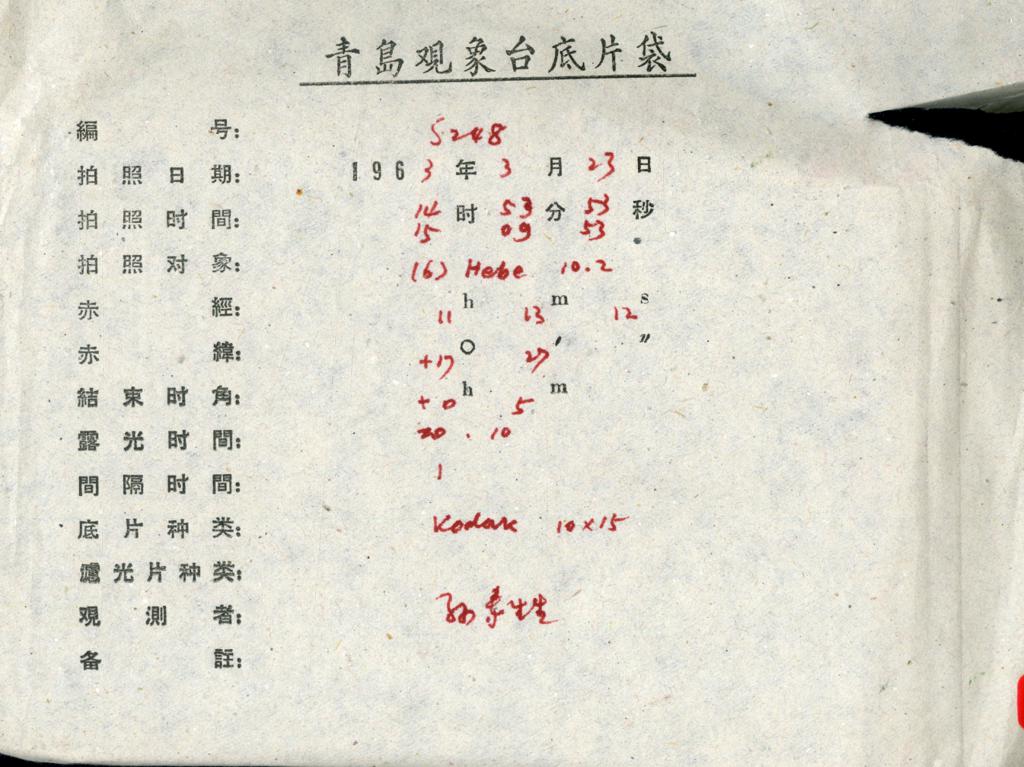 青島观象台底片袋
編号: 5248
拍照日期: 1963年3月23日
拍照时間: 14时53分53秒
15 09 53
拍照对象: (6) Hebe 10.2
赤經: 11h 13m 12s
赤緯: +17° 27′ ″
結束时角: +0h 5m
露光时間: 20 . 10
間隔时間: 1
底片种类: Kodak 10×15
濾光片种类:
观測者: 孙
备註: